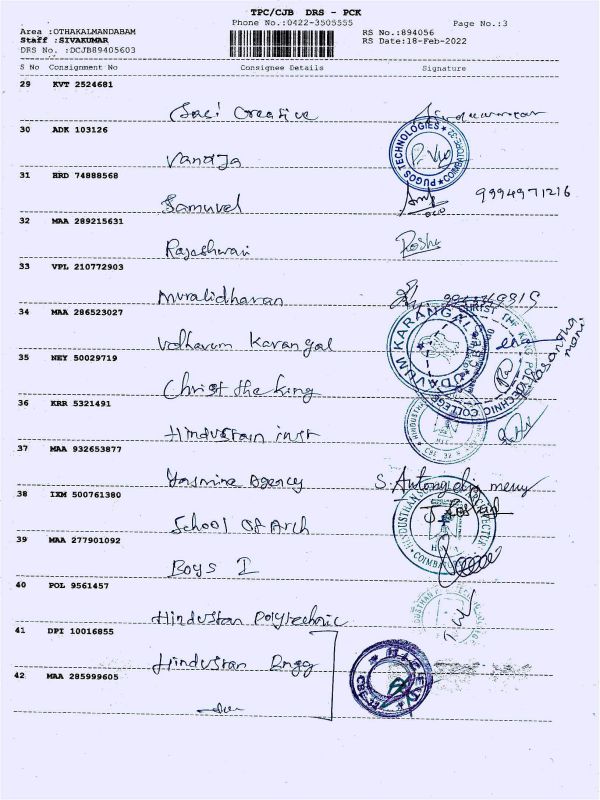 TPC/CJB DRS - PCK
Phone No.:0422-3505555
Page No.:3
Area :OTHAKALMANDABAM
Staff :SIVAKUMAR
DRS No. :DCJB89405603
RS No.:894056
RS Date:18-Feb-2022
S No Consignment No Consignee Details Signature
29 KVT 2524681
Saci Creative
30 ADK 103126
PUGOS TECHNOLOGIES
Vanaja
31 HRD 74888568
Samuvel 9994971216
32 MAA 289215631
Rajeshwari Roshu
33 VPL 210772903
Muralidharan
34 MAA 286523027
UDAVUM KARANGAL
CHRIST THE KING POLYTECHNIC COLLEGE
Vdhavum Karangal
35 NEY 50029719
Christ the King
36 KRR 5321491
Hindustan inst
37 MAA 932653877
Yasmine Agency
38 IXM 500761380
School Of Arch
39 MAA 277901092
Boys I
40 POL 9561457
Hindustan Polytechnic
41 DPI 10016855
Hindustan Engg
42 MAA 285999605